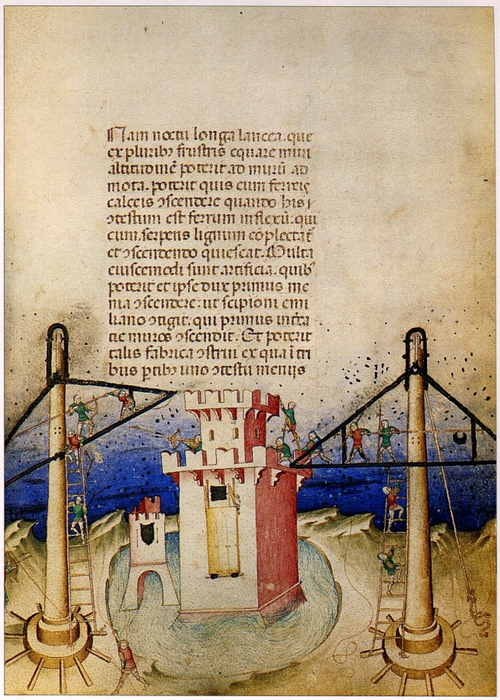 Nam noctu longa lancea. que
ex pluribꝰ frustris equare muri
altitudinē poterit ad murū ad
mota. poterit quis cum ferreis
calceis ↄscendere quando his
ↄtestum est ferrum inflexū. qui
cum serpens lignum cōplectat̄
et ↄscendendo quiescat. Multa
cuiuscemodi sunt artificia. quibꝰ
poterit et ipse dux primus me
nia ↄscendere. ut scipioni emi
liano ↄtigit. qui primus
muros ↄscendit. Et poterit
talis fabrica ↄstrui ex qua ī tri
bus ptibꝰ uno ↄtestu menijs